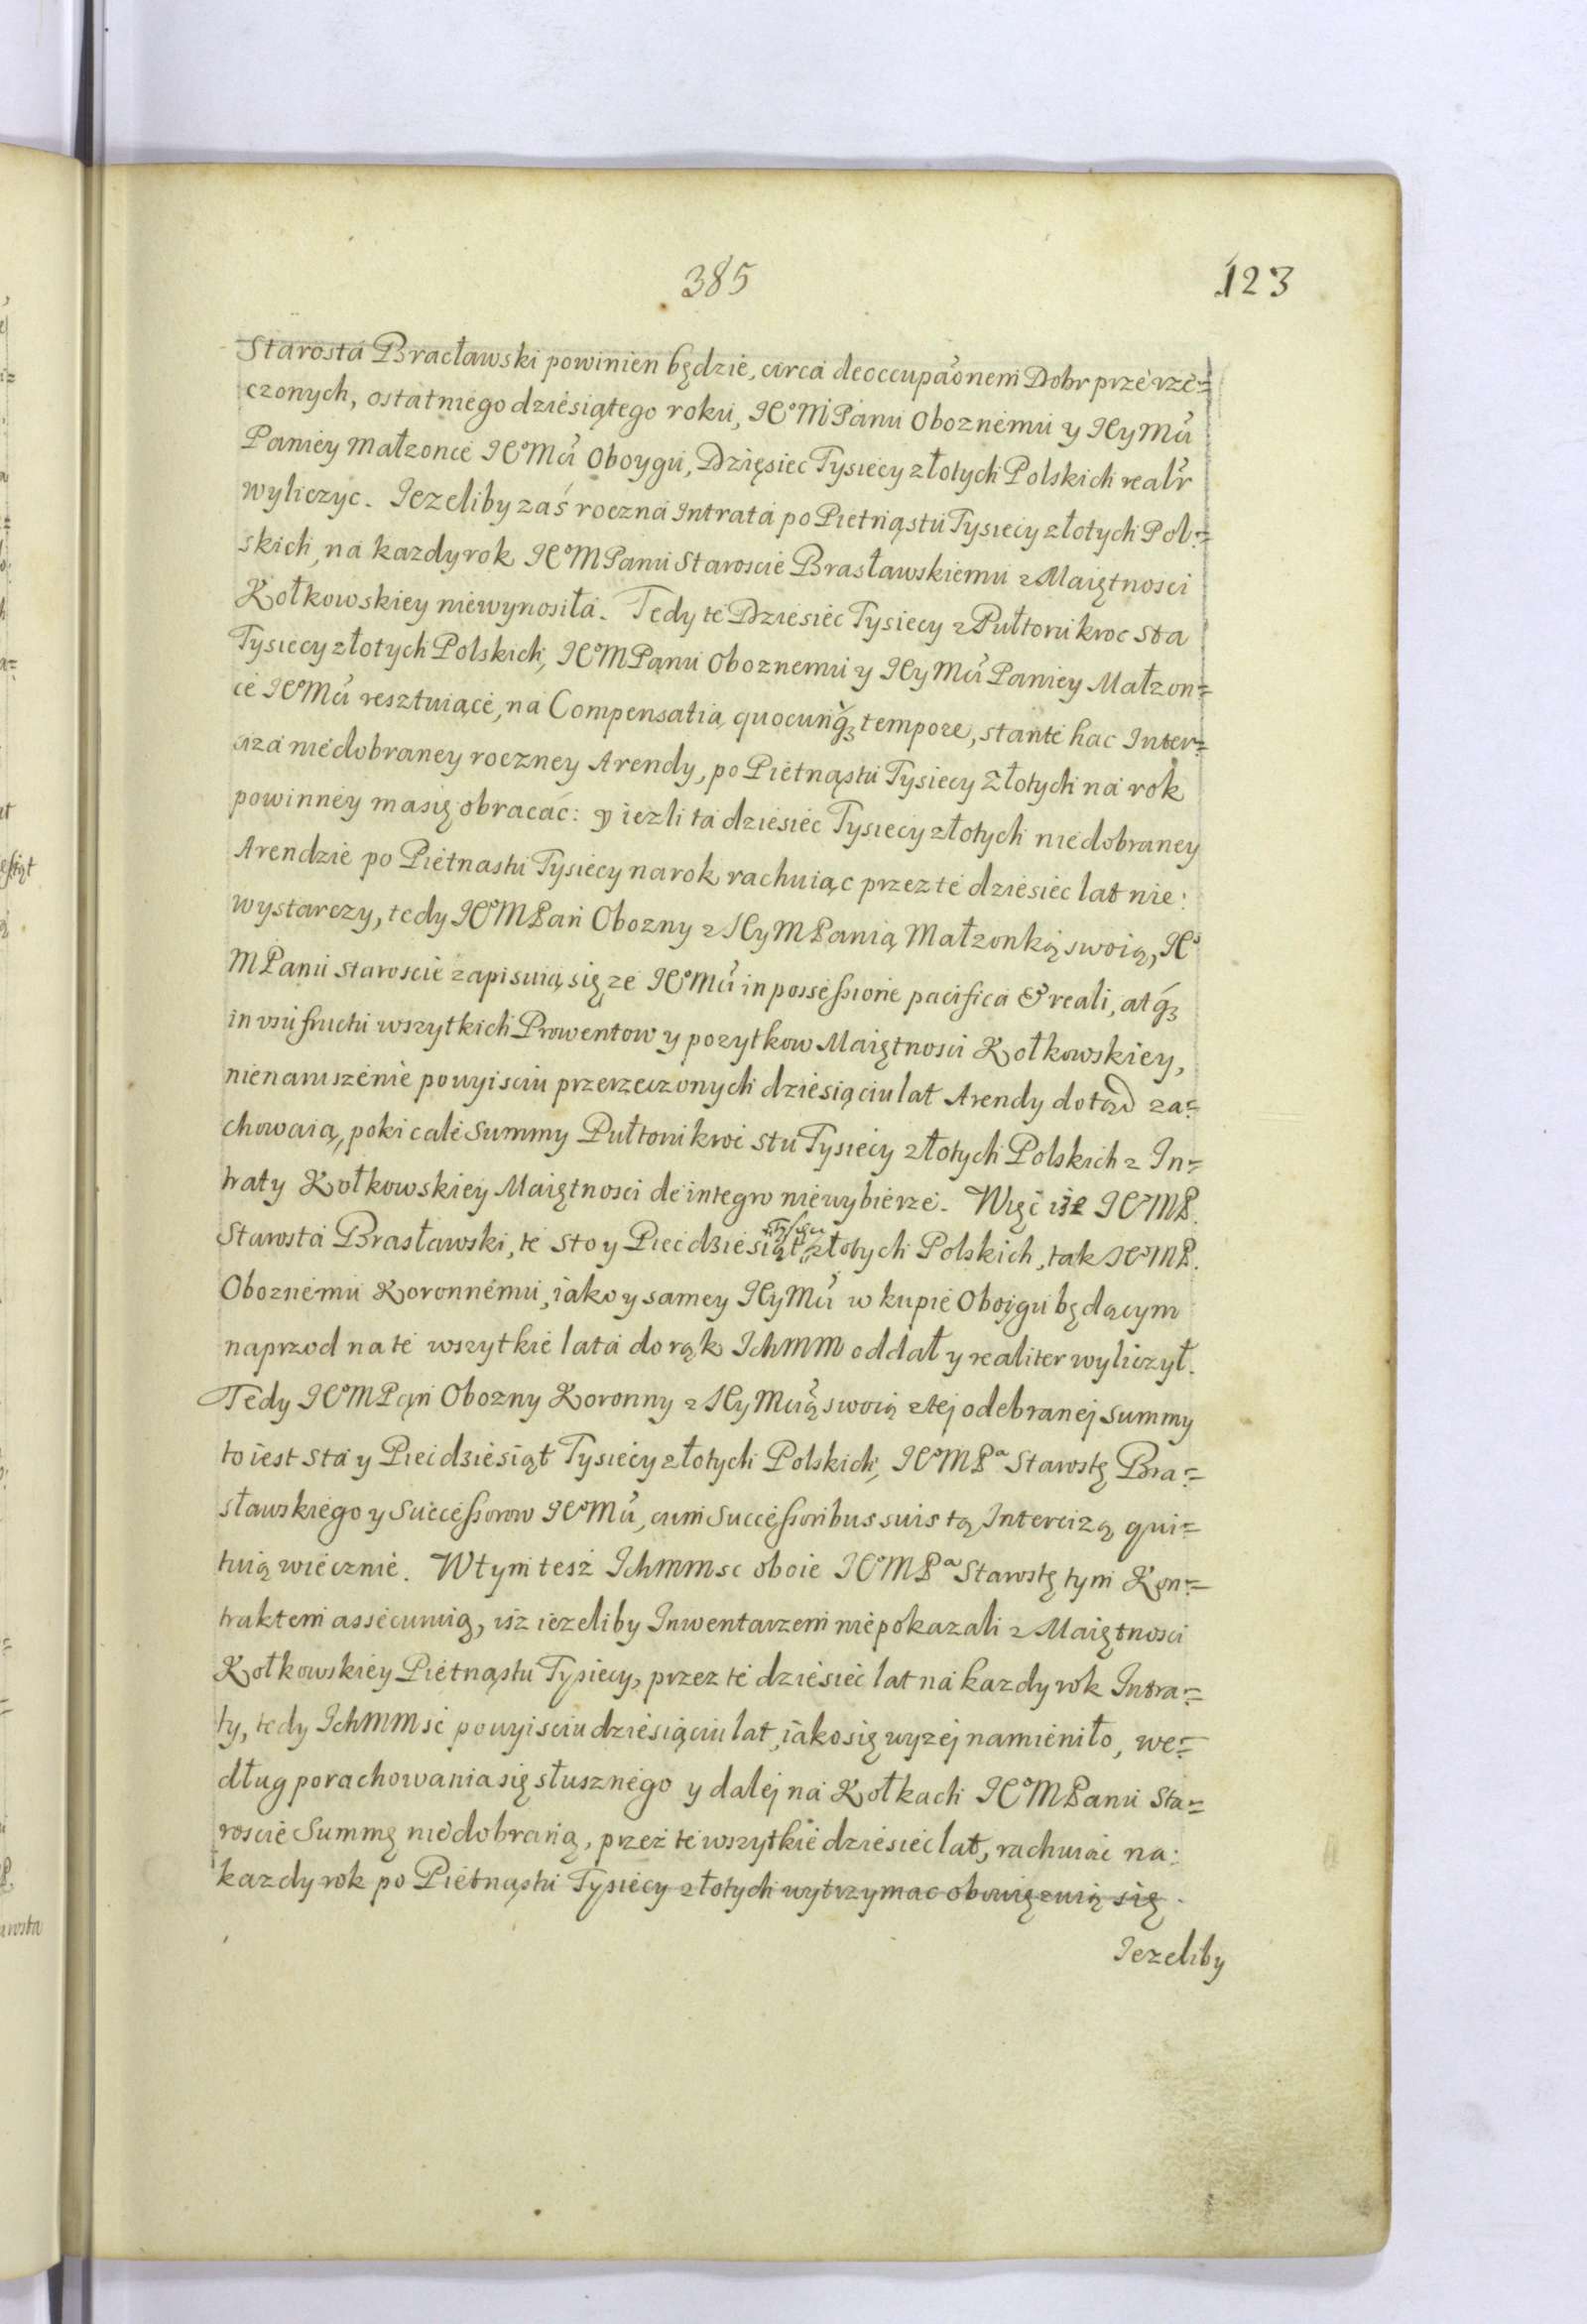 385
123
Starosta Bracławski powinien będzie, circa deoccupaõnem Dobr przerze=
czonych, ostatniego dziesiątego roku, JEº M Panu Oboznemu y JEy Mći
Paniey Małzonce JEº Mći Oboygu, Dzięsiec Tysiecy złotych Polskich realr
wyliczyc. Iezeliby zaś roczna Intrata po Pietnąstu Tysiecy złotych Pol=
skich, na kazdy rok JEº M Panu Staroscie Brasławskiemu z Maiętnosci
Kołkowskiey niewynosiła. Tedy te Dziesiec Tysiecy z Pułtoru kroc sta
Tysiecy złotych Polskich, JEº M Panu Oboznemu y JEy Mći Paniey Małzon=
ce JEº Mći resztuiące, na Compensatią quocunqꝫ tempore, stante hac Inter=
aza niedobraney roczney Arendy, po Pietnąstu Tysiecy Złotych na rok
powinney ma się obracac: y iezli ta dziesiec Tysiecy złotych niedobraney
Arendzie po Pietnastu Tysiecy na rok rachuiąc przez te dziesiec lat nie:
wystarczy, tedy JEº M Pan Obozny z JEy M Panią Małzonką swoią, JEº
M Panu Staroscie zapisuią się, ze JEº Mći in possessione pacifica & reali, atqꝫ
in usufructu wszytkich Prowentow y pozytkow Maiętnosci Kołkowskiey,
nienaruszenie po wyisciu przerzeczonych dziesiąciu lat Arendy dotąd za=
chowaią, poki cale Summy Pułtoru kroc stu Tysiecy złotych Polskich z In=
traty Kołkowskiey Maiętnosci de integro niewybierze. Więc iże JEº M P.
Starosta Brasławski, te sto y Piecdziesiąt Tysięcy złotych Polskich, tak JEº M P.
Oboznemu Koronnemu, iako y samey JEy Mći w kupie Oboygu będącym
naprzod na te wszytkie lata do rąk Ichmm oddał y realiter wyliczył.
Tedy JEº M Pąn Obozny Koronny z JEy Mćią swoią z tej odebranej summy
to iest sta y Piecdziesiąt Tysiecy złotych Polskich, JEº M Pª Starostę Bra=
sławskiego y Successorow JEº Mći, cum Successoribus suis tą Intercizą qui=
tuią wiecznie. W tym tesz Ichmmsc oboie JEº M Pª Starostę tym Kon=
traktem assecuruią, isz iezeliby Inwentarzem niepokazali z Maiętnosci
Kołkowskiey Pietnąstu Tysiecy, przez te dziesiec lat na kazdy rok Intra=
ty, tedy Ichmmsc po wyisciu dziesiąciu lat, iako się wyzej namieniło, we=
dług porachowania się słusznego y dalej na Kołkach JEº M Panu Sta=
roscie Summę niedobraną, przez te wszytkie dziesiec lat, rachuiac na:
kazdy rok po Pietnąstu Tysiecy złotych wytrzymac obowięzuią się
Iezeliby